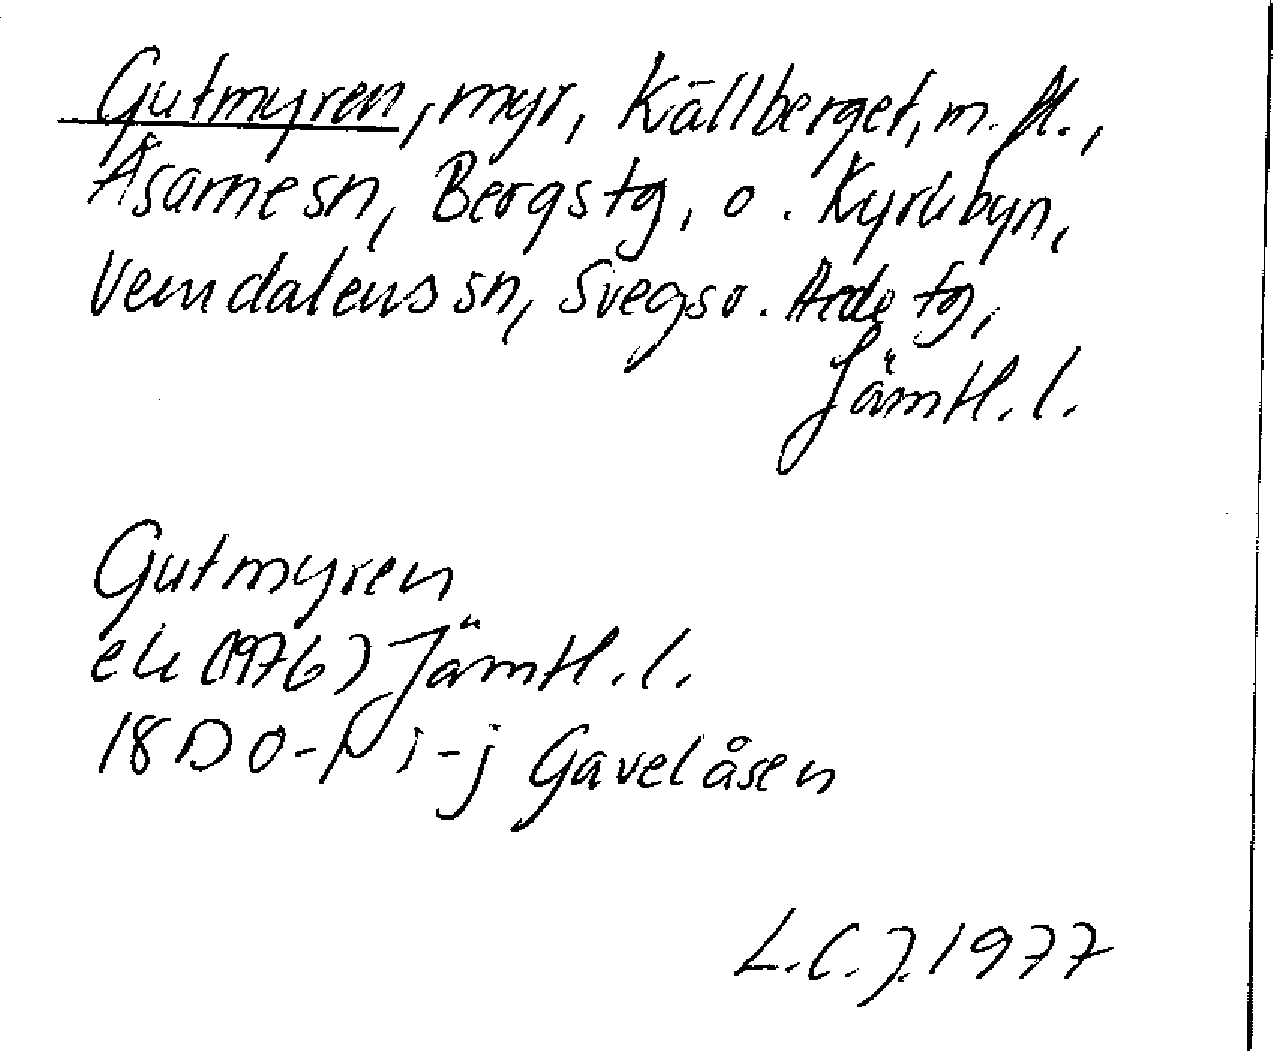 Gutmyren, myr, Källberget, m.fl.,
Åsarne sn, Bergs tg, o. Kyrkbyn,
Vemdalens sn, Svegs o. Hede tg,
Jämtl. l.
Gutmyren
ek (1976) Jämtl. l.
18D 0-1 i-j Gavelåsen
L.C.J. 1977